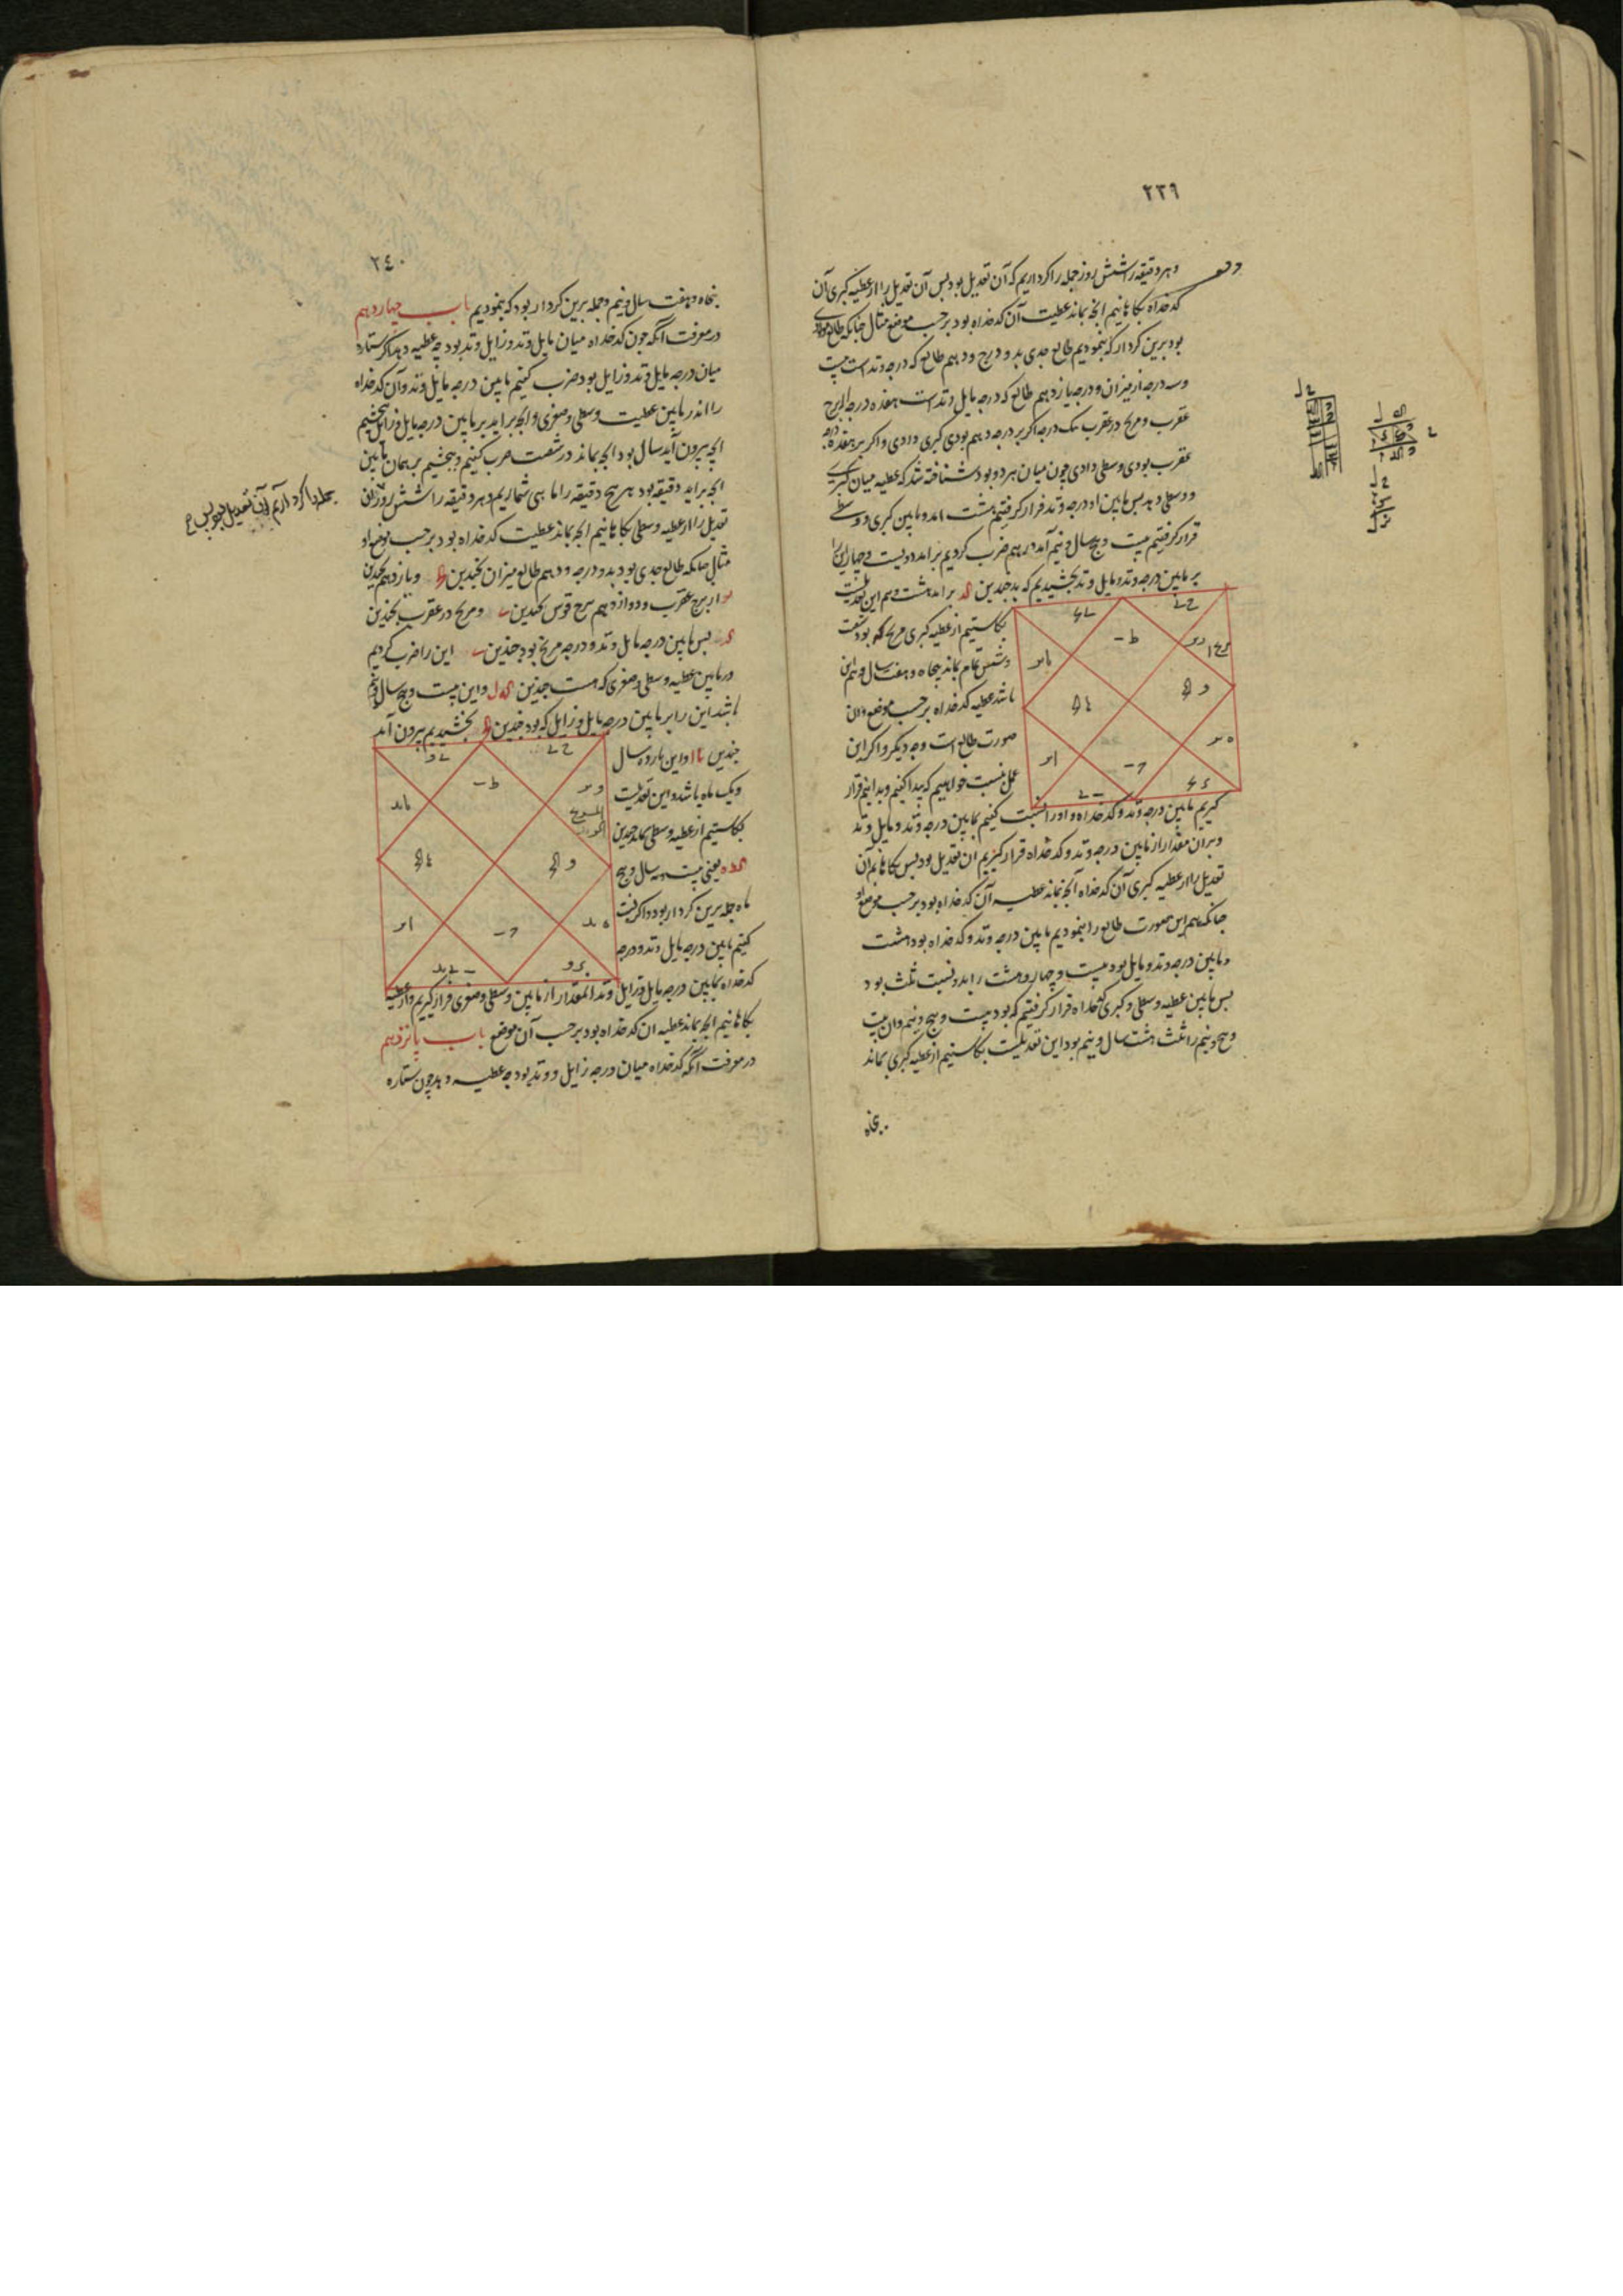 ٢٣٩
وهر دقیقه را شش روز جمله را کرد اریم که آن تعدیل بود پس آن تعدیل را از عطیه کبری آن
کدخداه بکاهانیم انچه بماند عطیت آن کدخداه بود بر حسب موضع مثال چنانکه طالع مولدی
بود برین کردار که بنمودیم طالع جدی بد و درج و دهم طالع که درجه وتد است بیست
وسه درجه از میزان و درجه یازدهم طالع که درجه مایل وتد است هفده درجه از برج
عقرب و مریخ در عقرب یک درجه اگر بر درجه دهم بودی کبری دادی و اگر بر هفده درجه
عقرب بودی وسطی دادی چون میان هر دو بود شناخته شد که عطیه میان کبری
و وسطی دهد پس مابین او درجه وتد فرار گرفتیم هشت امد و مابین کبری و وسطی
فرار گرفتیم بیست و پنج سال و نیم آمد درهم ضرب کردیم برامد دویست و چهار این را
بر مابین درجه وتد و مایل وتد بخشیدیم که بد چندین کد برامد هشت و نیم این تعدیلست
بکاستیم از عطیه کبری مریخ که بود شصت
وشش تمام بماند پنجاه و هفت سال و نیم این
باشد عطیه کدخداه بر حسب موضع و ان
صورت طالع است وجه دیگر و اگر این
عمل نسبت خواهیم که پیدا کنیم و بدانیم فرار
گیریم مابین درجه وتد و کدخداه و او را نسبت کنیم بمابین درجه وتد و مایل وتد
وبران مقدار از مابین درجه وتد و کدخداه فرار گیریم ان تعدیل بود پس بکاهانیم آن
تعدیل را از عطیه کبری آن کدخداه آنچه بماند عطیه آن کدخداه بود بر حسب موضع او
چنانکه هم این صورت طالع را بنمودیم مابین درجه وتد و کدخداه بود هشت
و مابین درجه وتد و مایل بود بیست و چهار و هشت را بدو نسبت ثلث بود
پس مابین عطیه وسطی و کبری کدخداه فرار گرفتیم که بود بیست و پنج و نیم و ان بیست
و پنج و نیم را ثلث هشت سال و نیم بود این تعدیلست بکاستیم از عطیه کبری بماند
پنجاه
٢٤٠
پنجاه وهفت سال و نیم وجمله برین کردار بود که بنمودیم باب چهاردهم
در معرفت آنکه چون کدخداه میان مایل وتد و زایل وتد بود چه عطیه دهد اگر ستاره
میان درجه مایل وتد و زایل بود ضرب کنیم مابین درجه مایل وتد و آن کدخداه
را اندر مابین عطیت وسطی و صغری و انچه براید بر مابین درجه مایل و زایل بخشیم
انچه بیرون آید سال بود انچه بماند در شصت ضرب کنیم و بخشیم بر همان مابین
انچه براید دقیقه بود هر پنج دقیقه را ماهی شماریم و هر دقیقه را شش روز ان
تعدیل را از عطیه وسطی بکاهانیم انچه بماند عطیت کدخداه بود بر حسب موضع او
مثال چنانکه طالع جدی بود بدو درجه و دهم طالع میزان بچندین و یازدهم بچندین
از برج عقرب و دوازدهم برج قوس بچندین و مریخ در عقرب بچندین
پس مابین درجه مایل وتد و درجه مریخ بود چندین این را ضرب کردیم
در مابین عطیه وسطی و صغری که هست چندین که ل و این بیست و پنج سال و نیم
باشد این را بر مابین درجه مایل و زایل که بود چندین بخشیدیم بیرون آمد
چندین و این یازده سال
ویک ماه باشد و این تعدیلست
بکاستیم از عطیه وسطی بماند چندین
یعنی بیست ونه سال و پنج
ماه جمله برین کردار بود و اگر نسبت
کنیم مابین درجه مایل وتد و درجه
کدخداه بمابین درجه مایل و زایل وتد المقدار از مابین وسطی و صغری فرار گیریم و از عطیه
بکاهانیم انچه بماند عطیه ان کدخداه بود بر حسب آن موضع باب پانزدهم
در معرفت آنکه کدخداه میان درجه زایل و وتد بود چه عطیه دهد چون ستاره
جمله را کرد اریم آن تعدیل بود پس